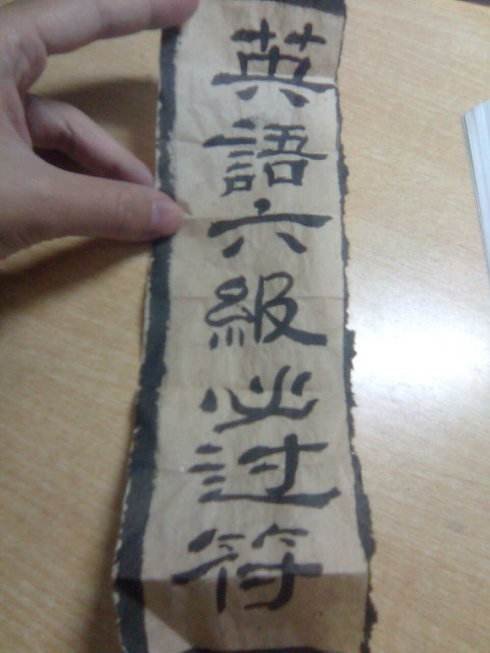 英語六級必过符